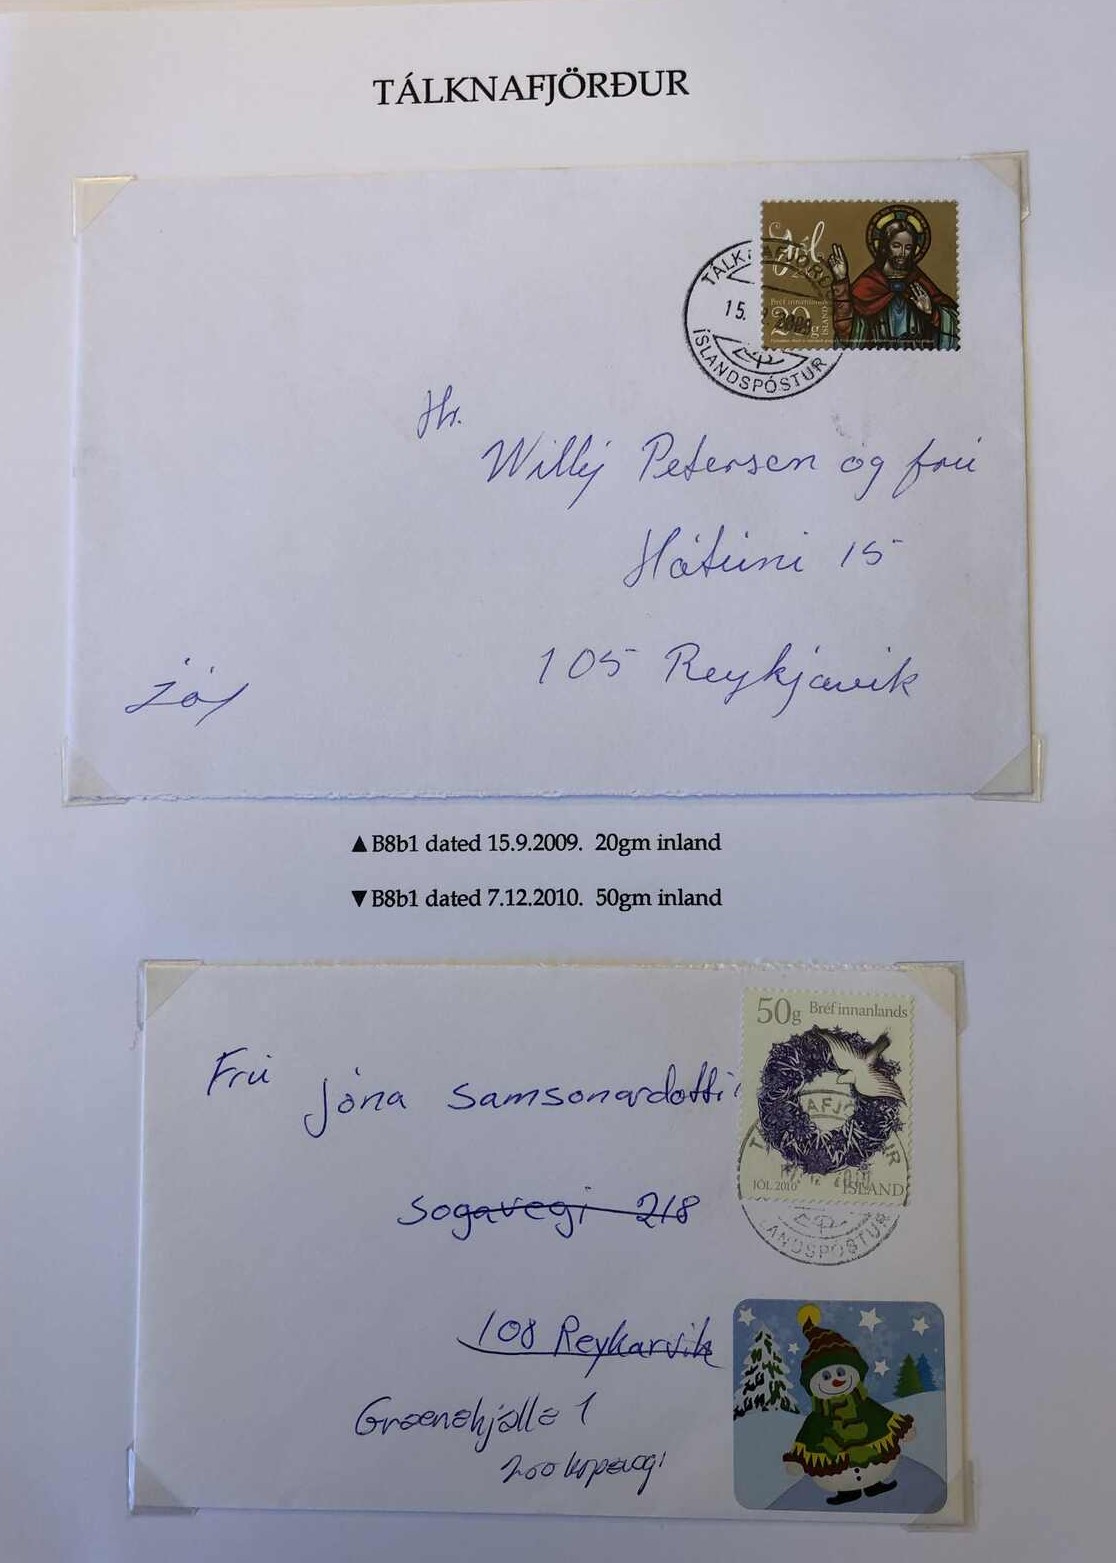 TÁLKNAFJÖRÐUR
Jól
Bréf innanlands
20g
ÍSLAND
15.
2009
ÍSLANDSPÓSTUR
Hr.
Willy Petersen og frú
Hátúni 15
105 Reykjavík
Jól
▲ B8b1 dated 15.9.2009. 20gm inland
▼ B8b1 dated 7.12.2010. 50gm inland
50g Bréf innanlands
JÓL 2010 ÍSLAND
LANDSPÓSTUR
Frú
Jóna Samsonardóttir
Sogavegi 218
108 Reykarvik
Grænahjalla 1
200 kópavogi